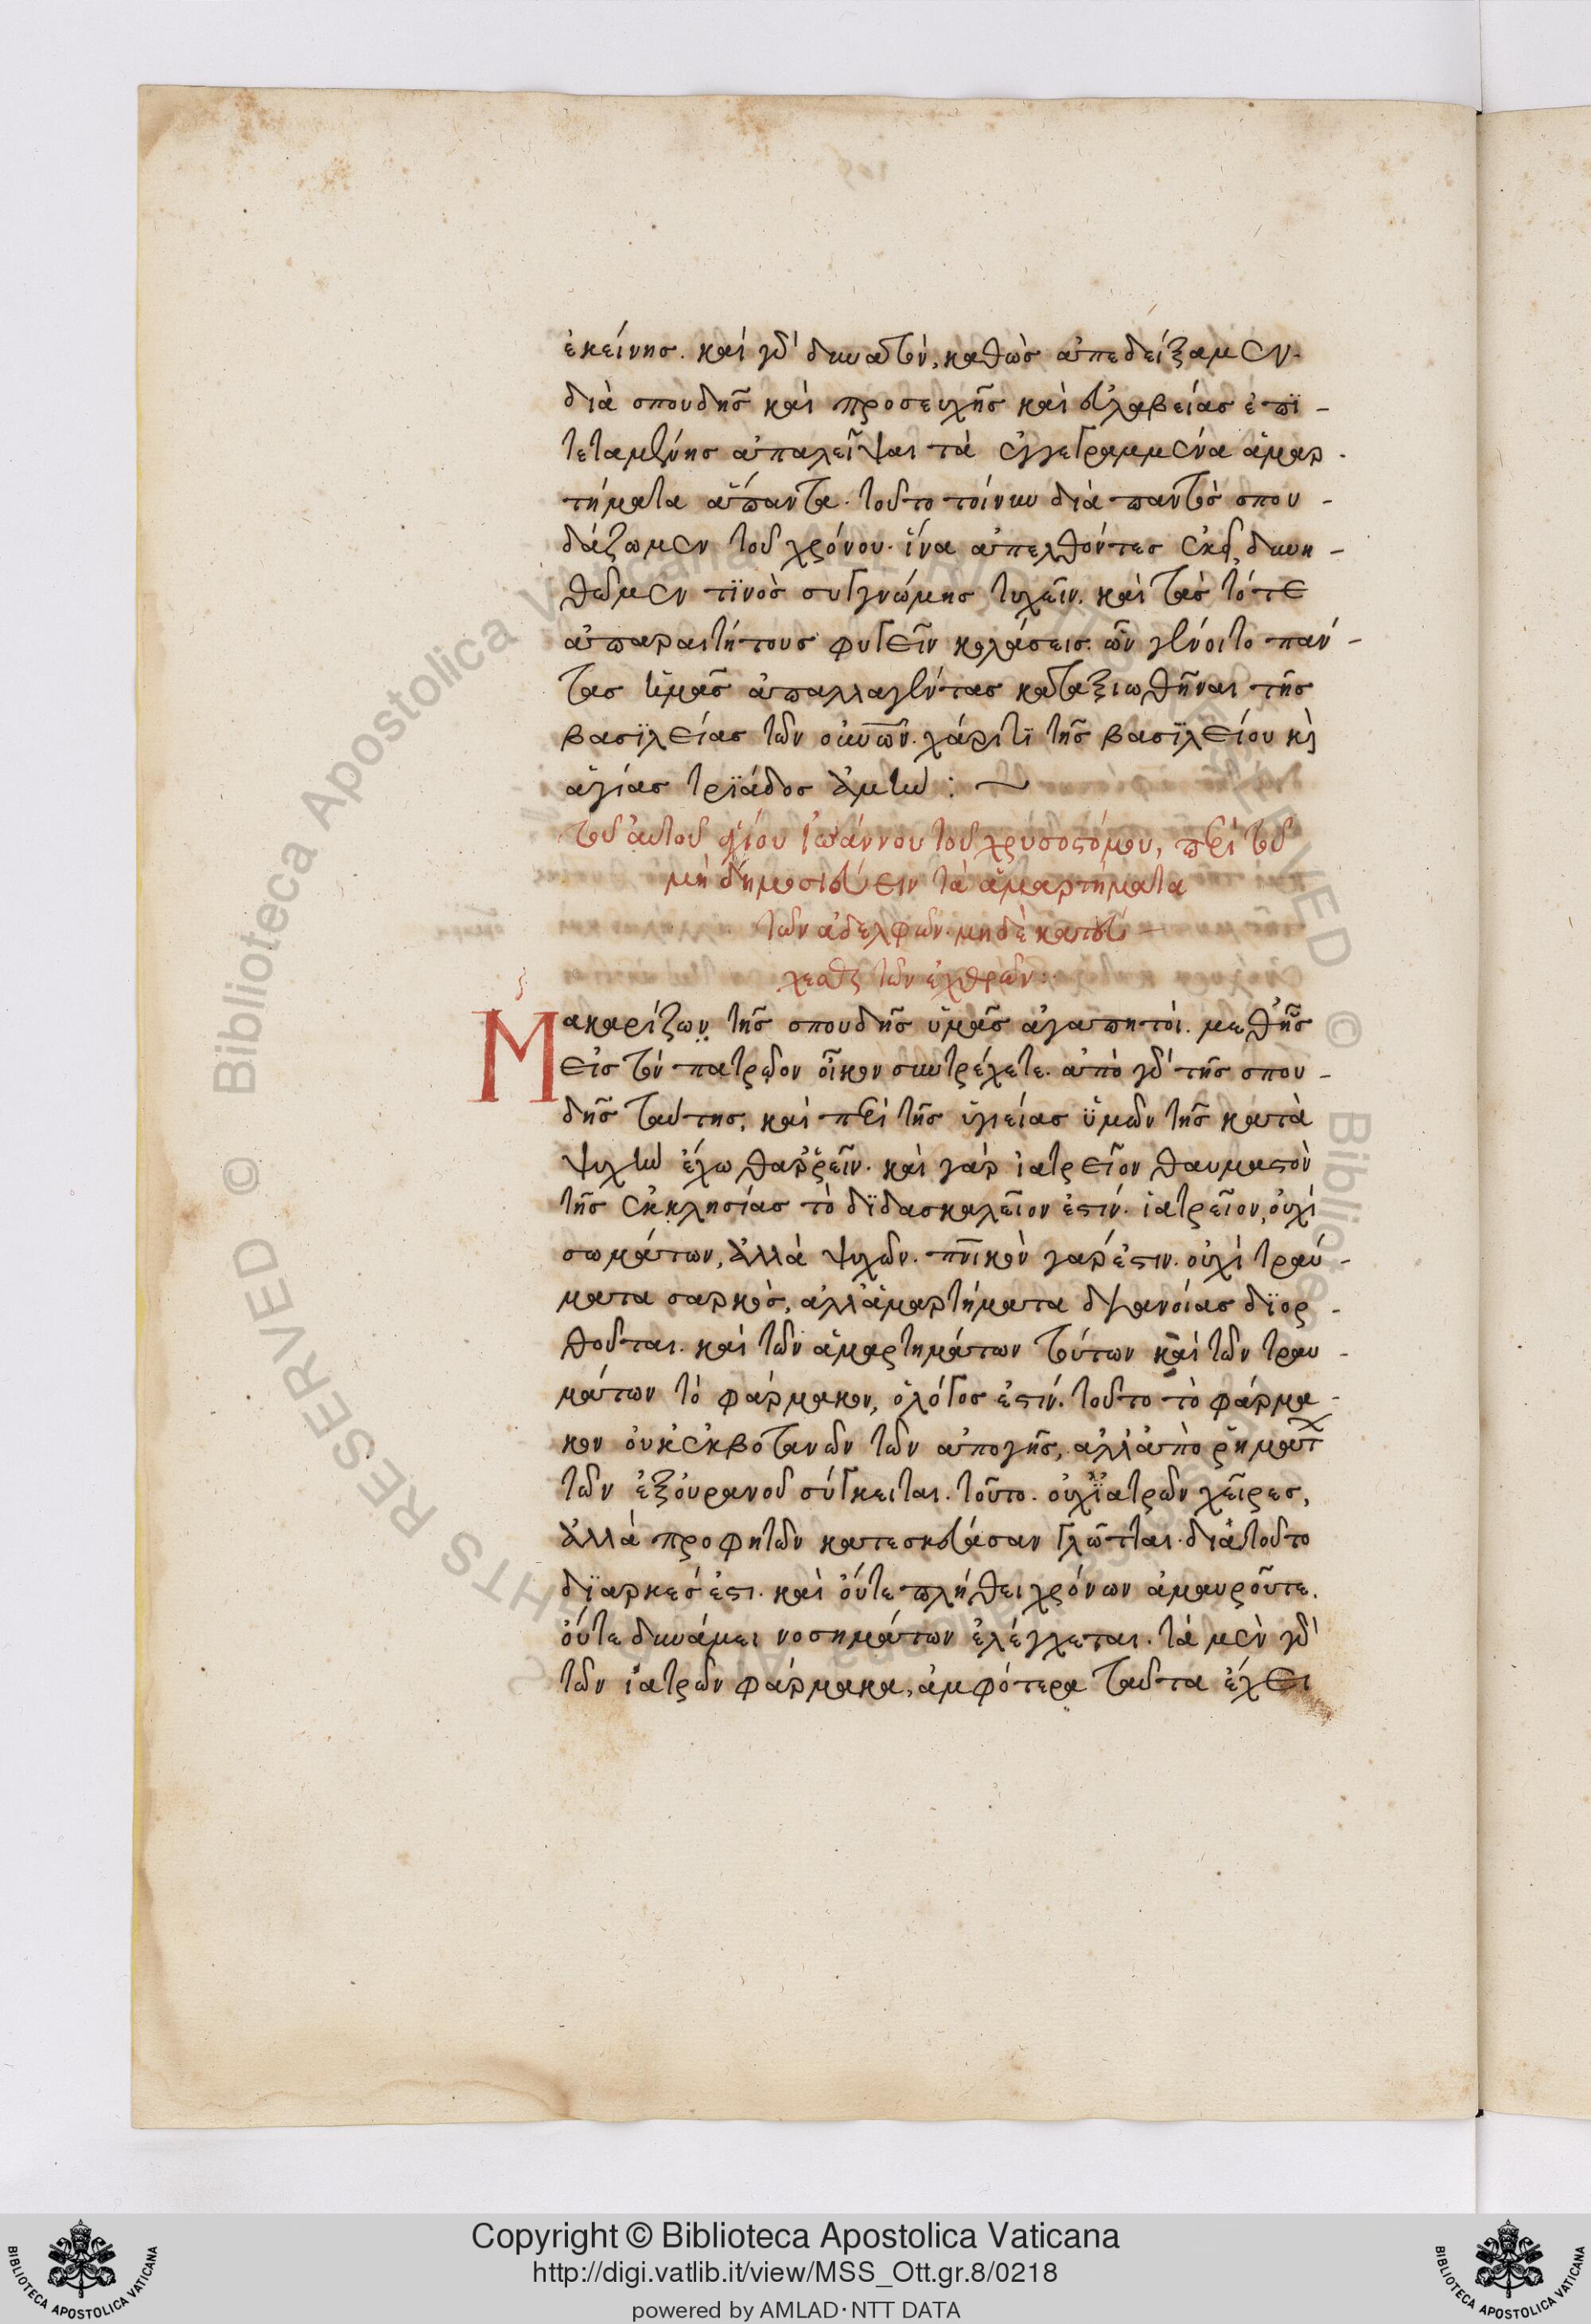 ἐκείνης. καὶ γὰρ δυνατόν, καθὼς ἀπεδείξαμεν.
διὰ σπουδῆς καὶ προσευχῆς καὶ εὐλαβείας ἐπϊ-
τεταμένης ἀπαλεῖψαι τὰ ἐγγεγραμμένα ἁμαρ-
τήματα ἅπαντα. τοῦτο τοίνυν διὰ παντὸς σπου-
δάζωμεν τοῦ χρόνου. ἵνα ἀπελθόντες ἐκεῖ, δυνη-
θῶμεν τϊνὸς συγγνώμης τυχεῖν. καὶ τὰς τότε
ἀπαραιτήτους φυγεῖν κολάσεις. ὧν γένοιτο πάν-
τας ἡμᾶς ἀπαλλαγέντας καταξιωθῆναι τῆς
βασϊλείας τῶν οὐνῶν. χάριτϊ τῆς βασϊλείου κὶ
ἁγίας τρϊάδος ἀμήν : ~
τοῦ αὐτοῦ ἁγίου Ἰωάννου τοῦ χρυσοστόμου, περὶ τοῦ
μὴ δημοσιεύειν τὰ ἁμαρτήματα
τῶν ἀδελφῶν. μηδὲ κατεύ-
χεσθαι τῶν ἐχθρῶν:
Μακαρίζων τῆς σπουδῆς ὑμᾶς ἀγαπητοί. μεθ ἧς
εἰς τὸν πατρῷον οἶκον συντρέχετε. ἀπὸ γὰρ τῆς σπου-
δῆς ταύτης, καὶ περὶ τῆς ὑγιείας ὑμῶν τῆς κατὰ
ψυχὴν ἔχω θαῤῥεῖν. καὶ γὰρ ἰατρεῖον θαυμαστὸν
τῆς ἐκκλησίας τὸ δϊδασκαλεῖον ἐστίν. ἰατρεῖον, οὐχὶ
σωμάτων, ἀλλὰ ψυχῶν. πνικὸν γάρ ἐστιν. οὐχὶ τραύ-
ματα σαρκὸς, ἀλλ ἁμαρτήματα διανοίας δϊορ-
θοῦται. καὶ τῶν ἁμαρτημάτων τούτων καὶ τῶν τραυ-
μάτων τὸ φάρμακον, ὁ λόγος ἐστίν. τοῦτο τὸ φάρμα-
κον οὐκ ἐκ βοτανῶν τῶν ἀπὸ γῆς, ἀλλ ἀπὸ ῥημάτων
τῶν ἐξ οὐρανοῦ σύγκειται. τοῦτο. οὐχ ϊατρῶν χεῖρες,
ἀλλὰ προφητῶν κατεσκεύασαν γλῶτται. διὰ τοῦτο
δϊαρκές ἐστι. καὶ οὔτε πλήθει χρόνων ἀμαυροῦτε.
οὔτε δυνάμει νοσημάτων ἐλέγχεται. τὰ μὲν γὰρ
τῶν ἰατρῶν φάρμακα, ἀμφότερα ταῦτα ἔχει
Copyright © Biblioteca Apostolica Vaticana
http://digi.vatlib.it/view/MSS_Ott.gr.8/0218
powered by AMLAD·NTT DATA